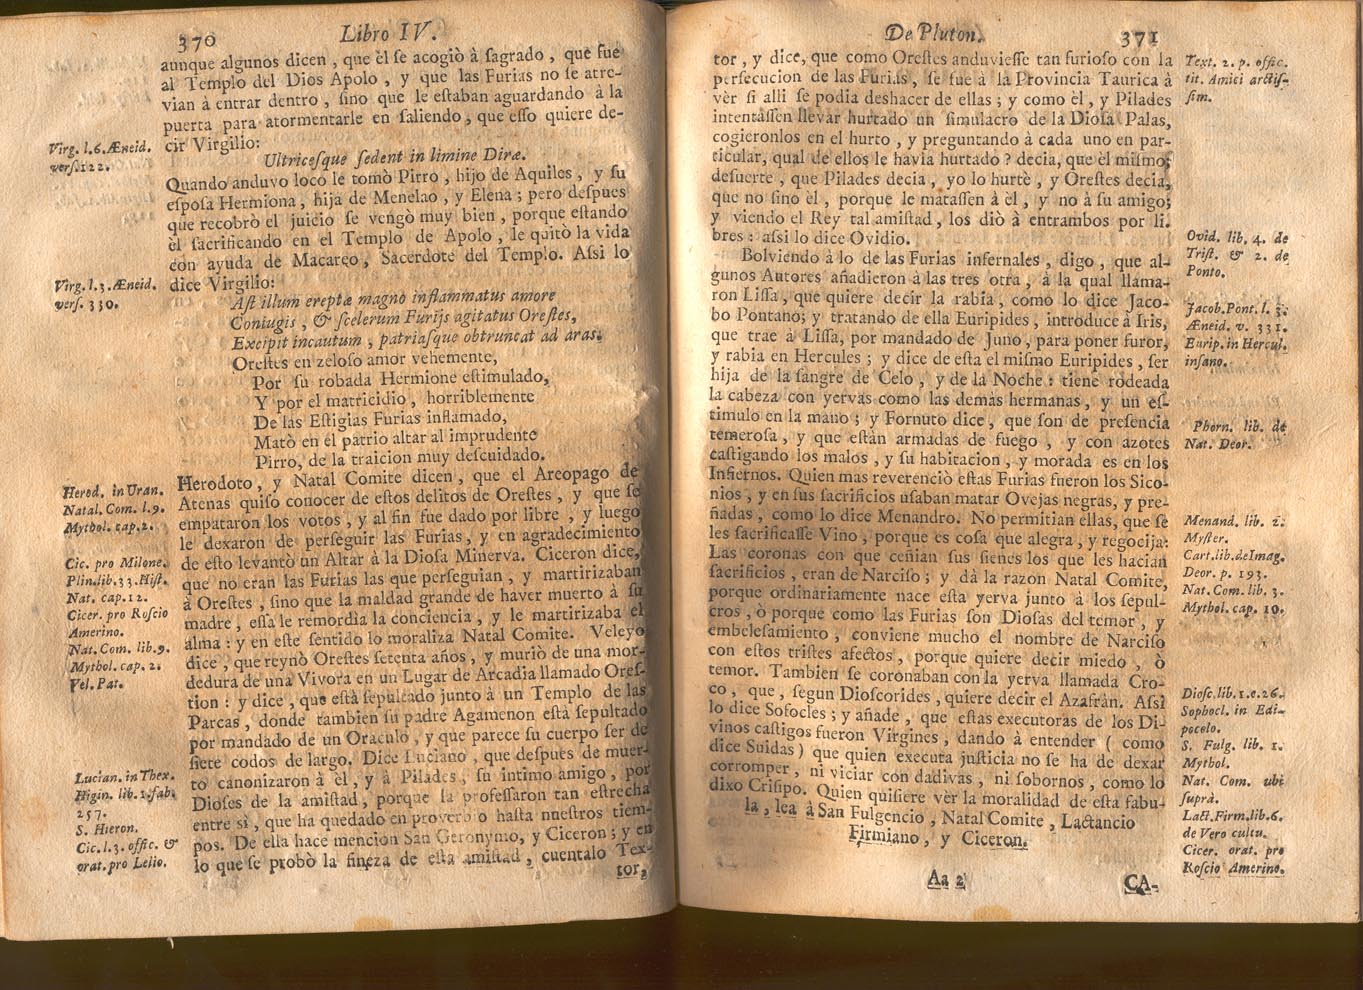 370
Libro IV.
aunque algunos dicen, que èl ſe acogiò à ſagrado, que fuè
al Templo del Dios Apolo, y que las Furias no ſe atre-
vian à entrar dentro, ſino que le eſtaban aguardando à la
puerta para atormentarle en ſaliendo, que eſſo quiere de-
cir Virgilio:
Ultriceſque ſedent in limine Diræ.
Quando anduvo loco le tomò Pirro, hijo de Aquiles, y ſu
eſpoſa Hermiona, hija de Menelao, y Elena; pero deſpues
que recobrò el juicio ſe vengò muy bien, porque eſtando
èl ſacrificando en el Templo de Apolo, le quitò la vida
con ayuda de Macareo, Sacerdote del Templo. Aſsi lo
dice Virgilio:
Aſt illum ereptæ magno inflammatus amore
Coniugis, & ſcelerum Furijs agitatus Oreſtes,
Excipit incautum, patriaſque obtruncat ad aras.
Oreſtes en zeloſo amor vehemente,
Por ſu robada Hermione eſtimulado,
Y por el matricidio, horriblemente
De las Eſtigias Furias inflamado,
Matò en el patrio altar al imprudente
Pirro, de la traicion muy deſcuidado.
Herodoto, y Natal Comite dicen, que el Areopago de
Atenas quiſo conocer de eſtos delitos de Oreſtes, y que ſe
empataron los votos, y al fin fue dado por libre, y luego
le dexaron de perſeguir las Furias, y en agradecimiento
de eſto levantò un Altar à la Dioſa Minerva. Ciceron dice,
que no eran las Furias las que perſeguian, y martirizaban
à Oreſtes, ſino que la maldad grande de haver muerto à ſu
madre, eſſa le remordia la conciencia, y le martirizaba el
alma: y en eſte ſentido lo moraliza Natal Comite. Veleyo
dice, que reynò Oreſtes ſetenta años, y muriò de una mor-
dedura de una Vivora en un Lugar de Arcadia llamado Oreſ-
tion: y dice, que eſtà ſepultado junto à un Templo de las
Parcas, donde tambien ſu padre Agamenon eſtà ſepultado
por mandado de un Oraculo, y que parece ſu cuerpo ſer de
ſiete codos de largo. Dice Luciano, que deſpues de muer-
to canonizaron à èl, y à Pilades, ſu intimo amigo, por
Dioſes de la amiſtad, porque la profeſſaron tan eſtrecha
entre sì, que ha quedado en proverbio haſta nueſtros tiem-
pos. De ella hace mencion San Geronymo, y Ciceron; y en
lo que ſe probò la fineza de eſta amiſtad, cuentalo Tex-
tor,
Virg. l.6. Æneid.
verſ.122.
Virg. l.3. Æneid.
verſ. 330.
Herod. in Uran.
Natal. Com. l.9.
Mythol. cap.2.
Cic. pro Milone.
Plin.lib.33.Hiſt.
Nat. cap.12.
Cicer. pro Roſcio
Amerino.
Nat. Com. lib.9.
Mythol. cap. 2.
Vel. Pat.
Lucian. in Thex.
Higin. lib. 1. fab.
257.
S. Hieron.
Cic. l.3. offic. &
orat. pro Lelio.
De Pluton.
371
tor, y dice, que como Oreſtes anduvieſſe tan furioſo con la
perſecucion de las Furias, ſe fue à la Provincia Taurica à
vèr ſi alli ſe podia deshacer de ellas; y como èl, y Pilades
intentaſſen llevar hurtado un ſimulacro de la Dioſa Palas,
cogieronlos en el hurto, y preguntando à cada uno en par-
ticular, qual de ellos le havia hurtado? decia, que èl miſmo;
deſuerte, que Pilades decia, yo lo hurtè, y Oreſtes decia,
que no ſino èl, porque le mataſſen à èl, y no à ſu amigo;
y viendo el Rey tal amiſtad, los diò à entrambos por li-
bres: aſsi lo dice Ovidio.
Bolviendo à lo de las Furias infernales, digo, que al-
gunos Autores añadieron à las tres otra, à la qual llama-
ron Liſſa, que quiere decir la rabia, como lo dice Jaco-
bo Pontano; y tratando de ella Euripides, introduce à Iris,
que trae à Liſſa, por mandado de Juno, para poner furor,
y rabia en Hercules; y dice de eſta el miſmo Euripides, ſer
hija de la ſangre de Celo, y de la Noche: tiene rodeada
la cabeza con yervas como las demás hermanas, y un eſ-
timulo en la mano; y Fornuto dice, que ſon de preſencia
temeroſa, y que eſtàn armadas de fuego, y con azotes
caſtigando los malos, y ſu habitacion, y morada es en los
Infiernos. Quien mas reverenciò eſtas Furias fueron los Sico-
nios, y en sus ſacrificios uſaban matar Ovejas negras, y pre-
ñadas, como lo dice Menandro. No permitian ellas, que ſe
les ſacrificaſſe Vino, porque es coſa que alegra, y regocija:
Las coronas con que ceñian ſus ſienes los que les hacian
ſacrificios, eran de Narciſo; y dà la razon Natal Comite,
porque ordinariamente nace eſta yerva junto à los ſepul-
cros, ò porque como las Furias ſon Dioſas del temor, y
embeleſamiento, conviene mucho el nombre de Narciſo
con eſtos triſtes afectos, porque quiere decir miedo, ò
temor. Tambien ſe coronaban con la yerva llamada Cro-
co, que, ſegun Dioſcorides, quiere decir el Azafràn. Aſsi
lo dice Sofocles; y añade, que eſtas executoras de los Di-
vinos caſtigos fueron Virgines, dando à entender ( como
dice Suidas ) que quien executa juſticia no ſe ha de dexar
corromper, ni viciar con dadivas, ni ſobornos, como lo
dixo Criſipo. Quien quiſiere vèr la moralidad de eſta fabu-
la, lea à San Fulgencio, Natal Comite, Lactancio
Firmiano, y Ciceron.
Aa 2
CA-
Text. 2. p. offic.
tit. Amici arctiſ-
ſim.
Ovid. lib. 4. de
Triſt. & 2. de
Ponto.
Jacob. Pont. l. 3.
Æneid. v. 331.
Eurip. in Hercul.
inſano.
Phorn. lib. de
Nat. Deor.
Menand. lib. 2.
Myſter.
Cart.lib.deImag.
Deor. p. 193.
Nat. Com. lib. 3.
Mythol. cap. 10.
Dioſc.lib.1.c.26.
Sophocl. in Edi-
pocelo.
S. Fulg. lib. 1.
Mythol.
Nat. Com. ubi
ſuprà.
Lact. Firm. lib. 6.
de Vero cultu.
Cicer. orat. pro
Roſcio Amerino.